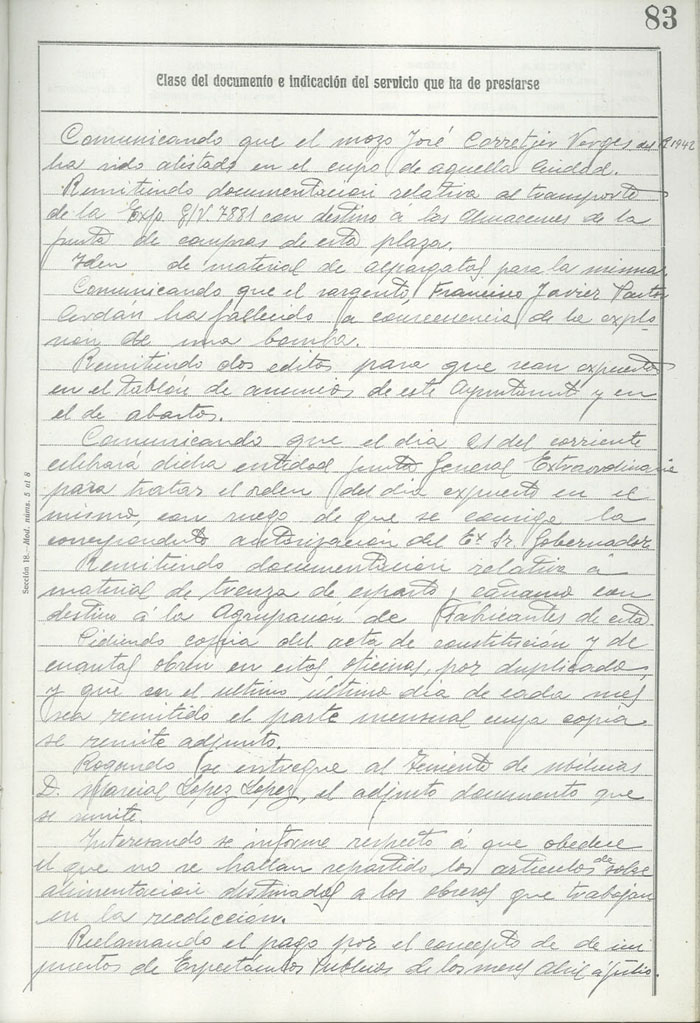 83
Clase del documento e indicación del servicio que ha de prestarse
Comunicando que el mozo José Corretjer Verges del R 1942
ha sido alistado en el cupo de aquella Ciudad.
Remitiendo documentación relativa al transporte
de la Exp. G/V. 7881 con destino á los Almacenes de la
junta de compras de esta plaza.
Idem de material de alpargatas para la misma.
Comunicando que el sargento Francisco Javier Pastor
ha fallecido a consecuencia de la explo-
sion de una bomba.
Remitiendo dos editos para que sean expuestos
en el tablón de anuncios de este Ayuntamt y en
el de abastos.
Comunicando que el dia 21 del corriente
celebrará dicha entidad junta General Extraordinaria
para tratar el orden del dia expuesto en el
mismo, con ruego de que se consiga la
correspondiente autorización del Ex Sr. Gobernador
Remitiendo documentación relativa á
material de trenza de esparto y cañamo con
destino á la Agrupación de Fabricantes de esta
Pidiendo copia del acta de constitución y de
cuantas obren en estas oficinas, por duplicado,
y que en el ultimo último dia de cada mes
sea remitido el parte mensual cuya copia
se remite adjunto.
Rogando se entregue al Teniente de Milicias
D. Marcial Lopez Lopez, el adjunto documento que
se remite.
Interesando se informe respecto á que obedece
el que no se hallan repartido los articulos de sobre
alimentacion destinados a los obreros que trabajan
en la recoleccion.
Reclamando el pago por el concepto de de im
puestos de Espectáculos Publicos de los meses Abril á Julio.
Sección 18.-Mod. núms. 5 al 8